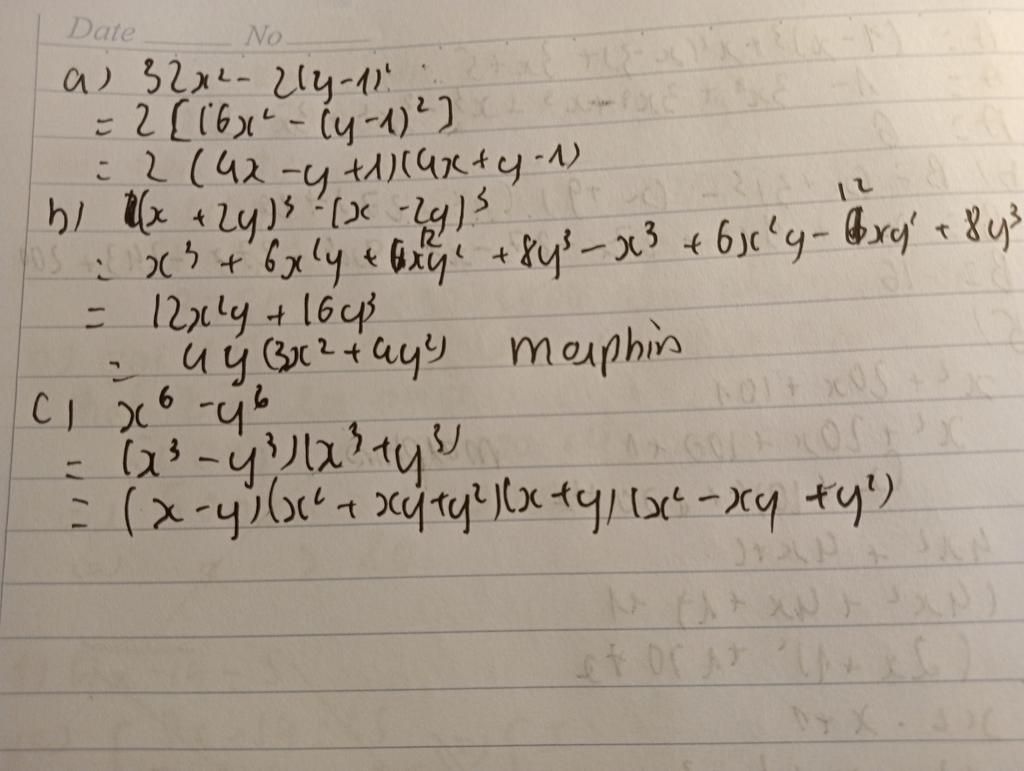 Date No
a) 32x² - 2(y-1)²
= 2 [16x² - (y-1)²]
= 2 (4x - y + 1)(4x + y - 1)
b) (x + 2y)³ - (x - 2y)³
= x³ + 6x²y + 12xy² + 8y³ - x³ + 6x²y - 12xy² + 8y³
= 12x²y + 16y³
= 4y (3x² + 4y²)
c) x⁶ - y⁶
= (x³ - y³)(x³ + y³)
= (x - y)(x² + xy + y²)(x + y)(x² - xy + y²)